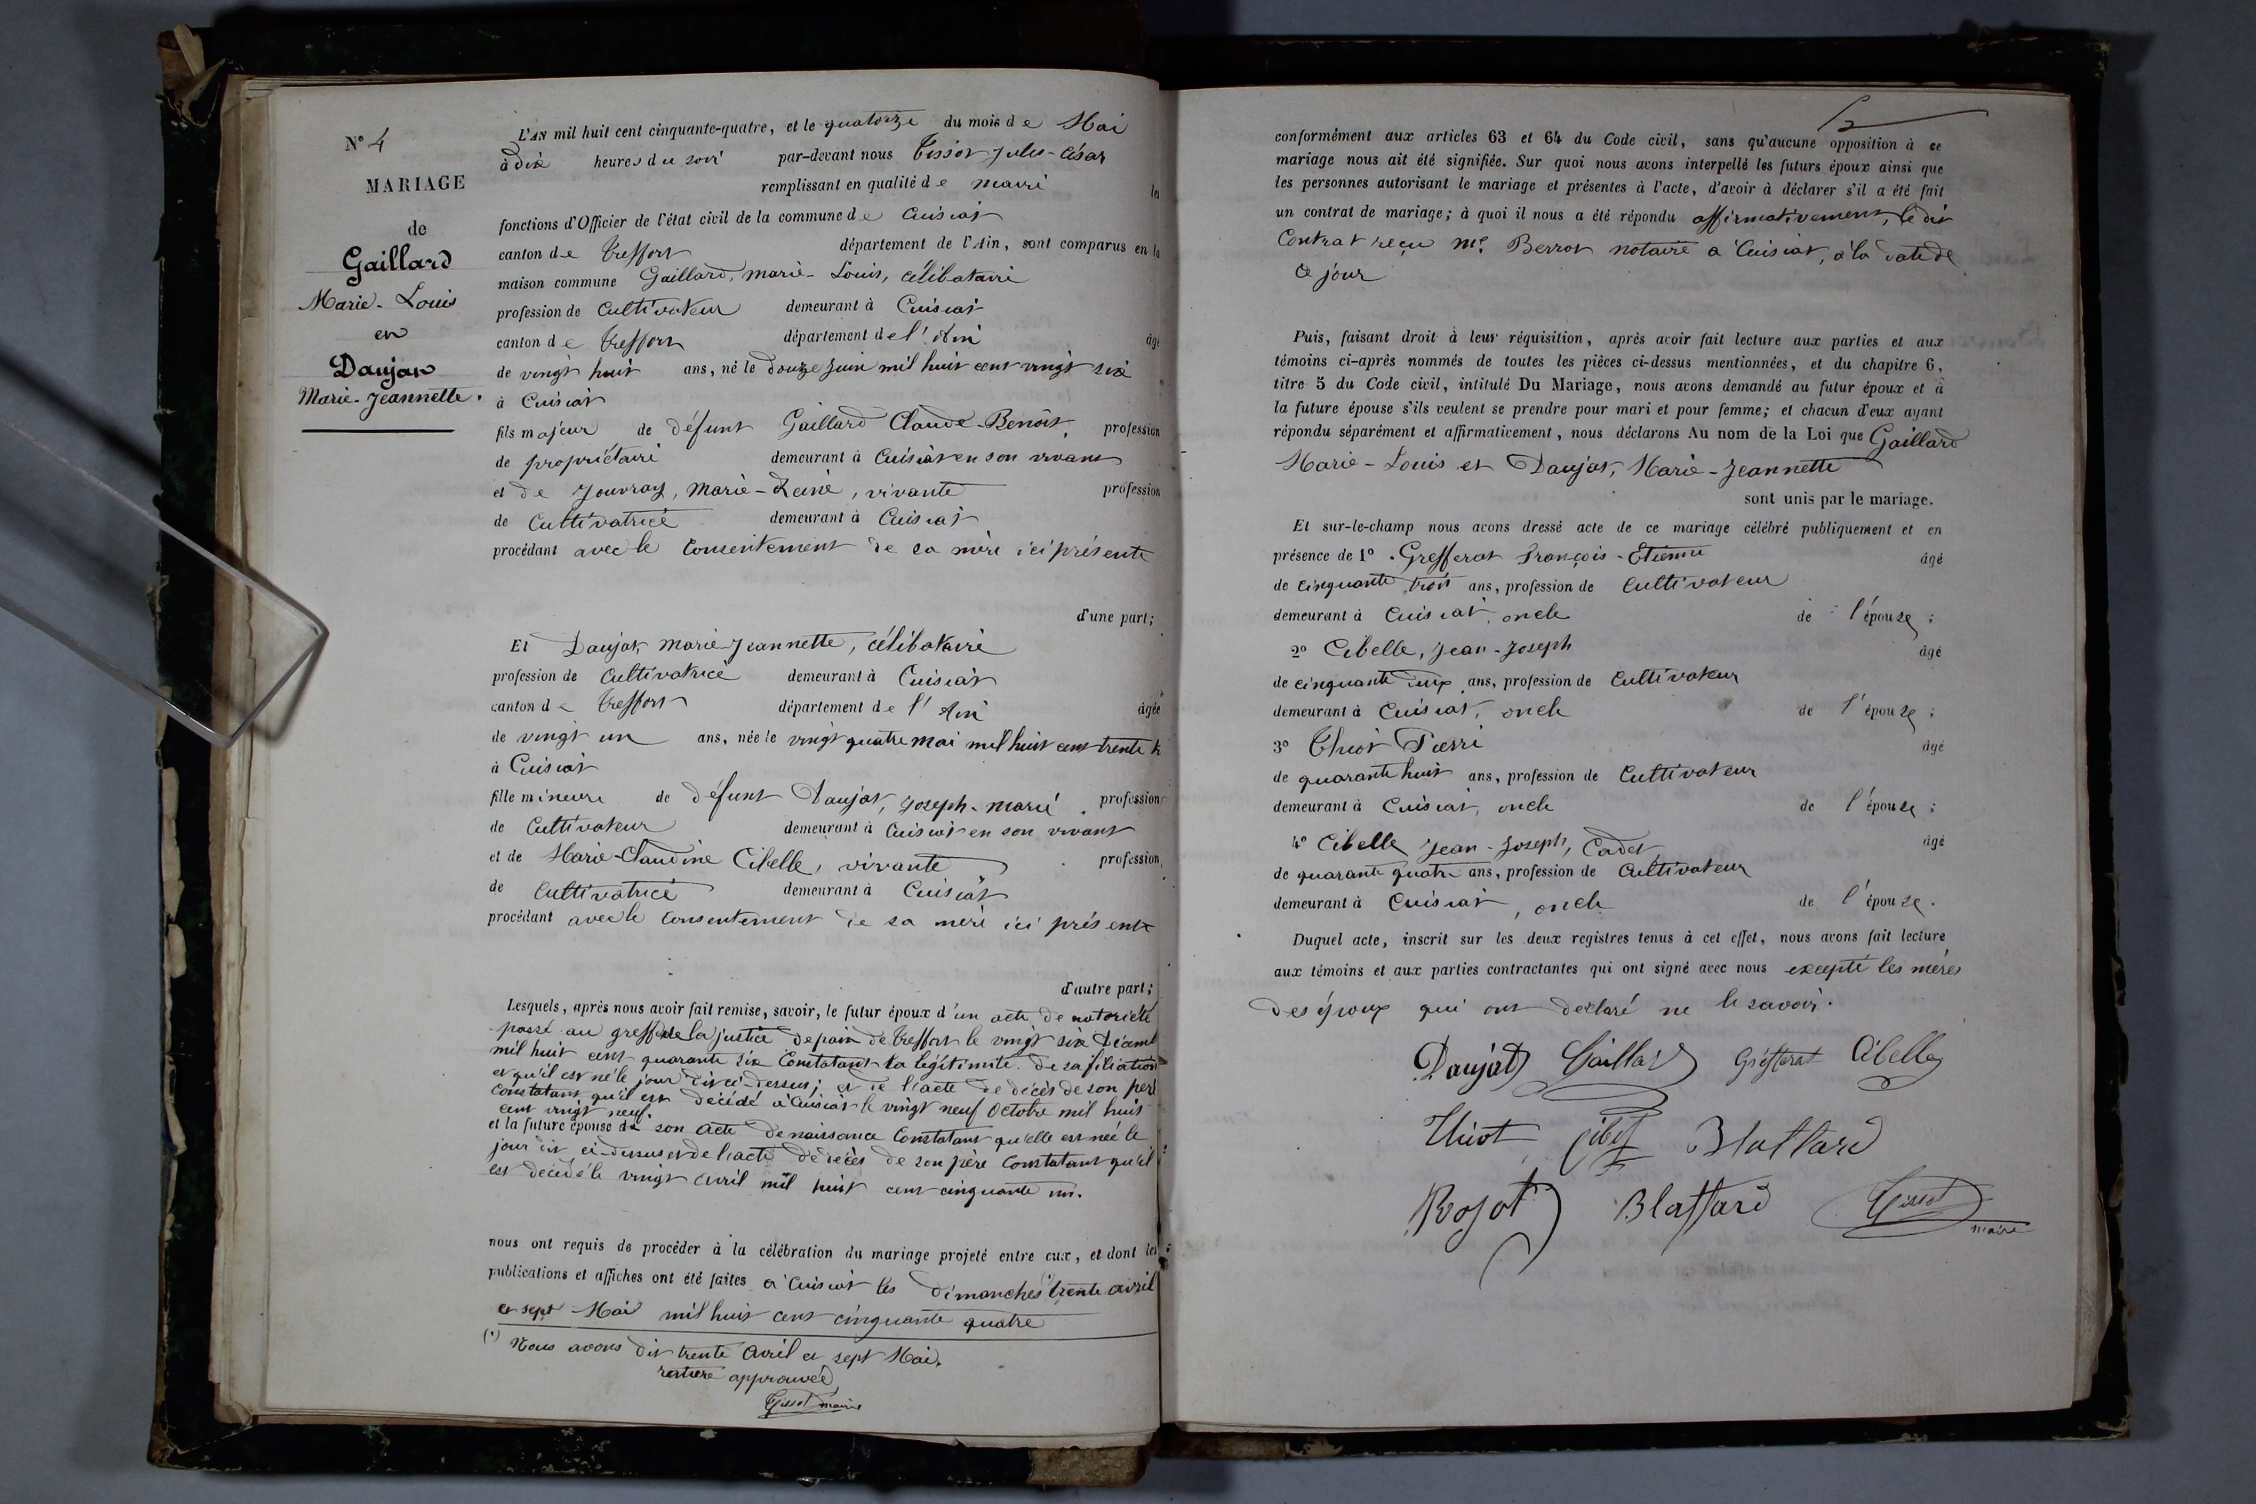 N° 4
MARIAGE
de
Gaillard
Marie-Louis
et
Daujat
Marie-Jeannette.
L'AN mil huit cent cinquante-quatre, et le quatorze du mois de Mai
à dix heures du soir par-devant nous Tissot Jules-César
remplissant en qualité de maire les
fonctions d'Officier de l'état civil de la commune de Cuisiat
canton de Treffort département de l'Ain, sont comparus en la
maison commune Gaillard, Marie-Louis, célibataire
profession de Cultivateur demeurant à Cuisiat
canton de Treffort département de l'Ain âgé
de vingt huit ans, né le douze Juin mil huit cent vingt six
à Cuisiat
fils majeur de défunt Gaillard Claude-Benoit, profession
de propriétaire demeurant à Cuisiat en son vivant
et de Jouvray, Marie-Reine, vivante profession
de Cultivatrice demeurant à Cuisiat
procédant avec le consentement de sa mère ici présente
d'une part;
Et Daujat, Marie-Jeannette, célibataire
profession de Cultivatrice demeurant à Cuisiat
canton de Treffort département de l'Ain âgée
de vingt un ans, née le vingt quatre Mai mil huit cent trente
à Cuisiat
fille mineure de défunt Daujat, Joseph-Marie profession
de Cultivateur demeurant à Cuisiat en son vivant
et de Marie-Claudine Cibelle, vivante profession
de Cultivatrice demeurant à Cuisiat
procédant avec le consentement de sa mère ici présente
d'autre part;
Lesquels, après nous avoir fait remise, savoir, le futur époux d'un acte de notoriété
passé au greffe de la justice de paix de Treffort le vingt six Décemb
mil huit cent quarante six Constatant la légitimité de sa filiation
et qu'il est né le jour dit ci-dessus; et de l'acte de décès de son père
Constatant qu'il est décédé à Cuisiat le vingt neuf Octobre mil huit
cent vingt neuf.
et la future épouse de son acte de naissance Constatant qu'elle est née le
jour dit ci-dessus et de l'acte de décès de son père Constatant qu'il
est décédé le vingt avril mil huit cent cinquante un.
nous ont requis de procéder à la célébration du mariage projeté entre eux, et dont les
publications et affiches ont été faites à Cuisiat les dimanches trente avril
et sept Mai mil huit cent cinquante quatre
(1) Nous avons dit trente Avril et sept Mai.
rature approuvée
Tissot maire
conformément aux articles 63 et 64 du Code civil, sans qu'aucune opposition à ce
mariage nous ait été signifiée. Sur quoi nous avons interpellé les futurs époux ainsi que
les personnes autorisant le mariage et présentes à l'acte, d'avoir à déclarer s'il a été fait
un contrat de mariage; à quoi il nous a été répondu affirmativement, le dit
Contrat reçu Me. Berrot notaire à Cuisiat, à la date de
ce jour
Puis, faisant droit à leur réquisition, après avoir fait lecture aux parties et aux
témoins ci-après nommés de toutes les pièces ci-dessus mentionnées, et du chapitre 6,
titre 5 du Code civil, intitulé Du Mariage, nous avons demandé au futur époux et à
la future épouse s'ils veulent se prendre pour mari et pour femme; et chacun d'eux ayant
répondu séparément et affirmativement, nous déclarons Au nom de la Loi que Gaillard
Marie-Louis et Daujat, Marie-Jeannette
sont unis par le mariage.
Et sur-le-champ nous avons dressé acte de ce mariage célébré publiquement et en
présence de 1° Grefferat François-Etienne âgé
de cinquante trois ans, profession de Cultivateur
demeurant à Cuisiat, oncle de l'épouse;
2° Cibelle, Jean-Joseph âgé
de cinquante deux ans, profession de Cultivateur
demeurant à Cuisiat, oncle de l'épouse;
3° Thiot Pierre âgé
de quarante huit ans, profession de Cultivateur
demeurant à Cuisiat, oncle de l'épouse;
4° Cibelle Jean-Joseph, Cadet, âgé
de quarante quatre ans, profession de Cultivateur
demeurant à Cuisiat, oncle de l'épouse.
Duquel acte, inscrit sur les deux registres tenus à cet effet, nous avons fait lecture
aux témoins et aux parties contractantes qui ont signé avec nous excepté les mères
des époux qui ont déclaré ne le savoir.
Daujat Gaillard Grefferat Cibelle
Thiot Blattard
Rojot Blattard Tissot
maire